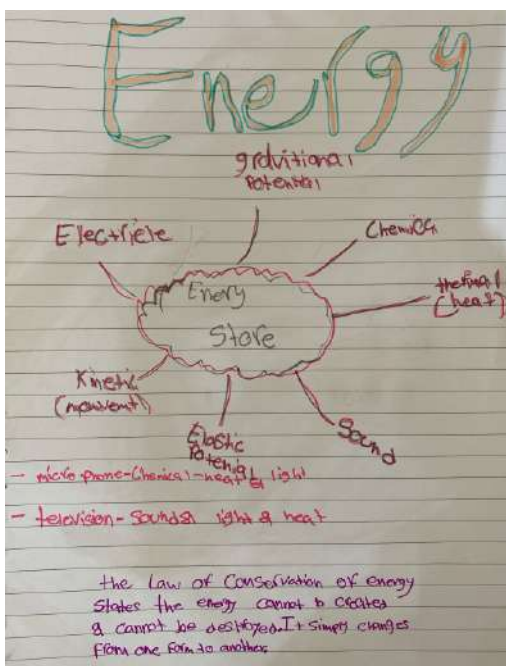 Energy
gravitional
Potential
Electricle
Chemica
Enery
Store
thermal
(heat)
Kinetic
(movement)
Elastic
Potenial
Sound
- micro phone-Chemical-heat & light
- television - Sound & light & heat
the Law of Conservation of energy
States the energy cannot b created
& cannot be destroyed. It simply changes
from one form to another